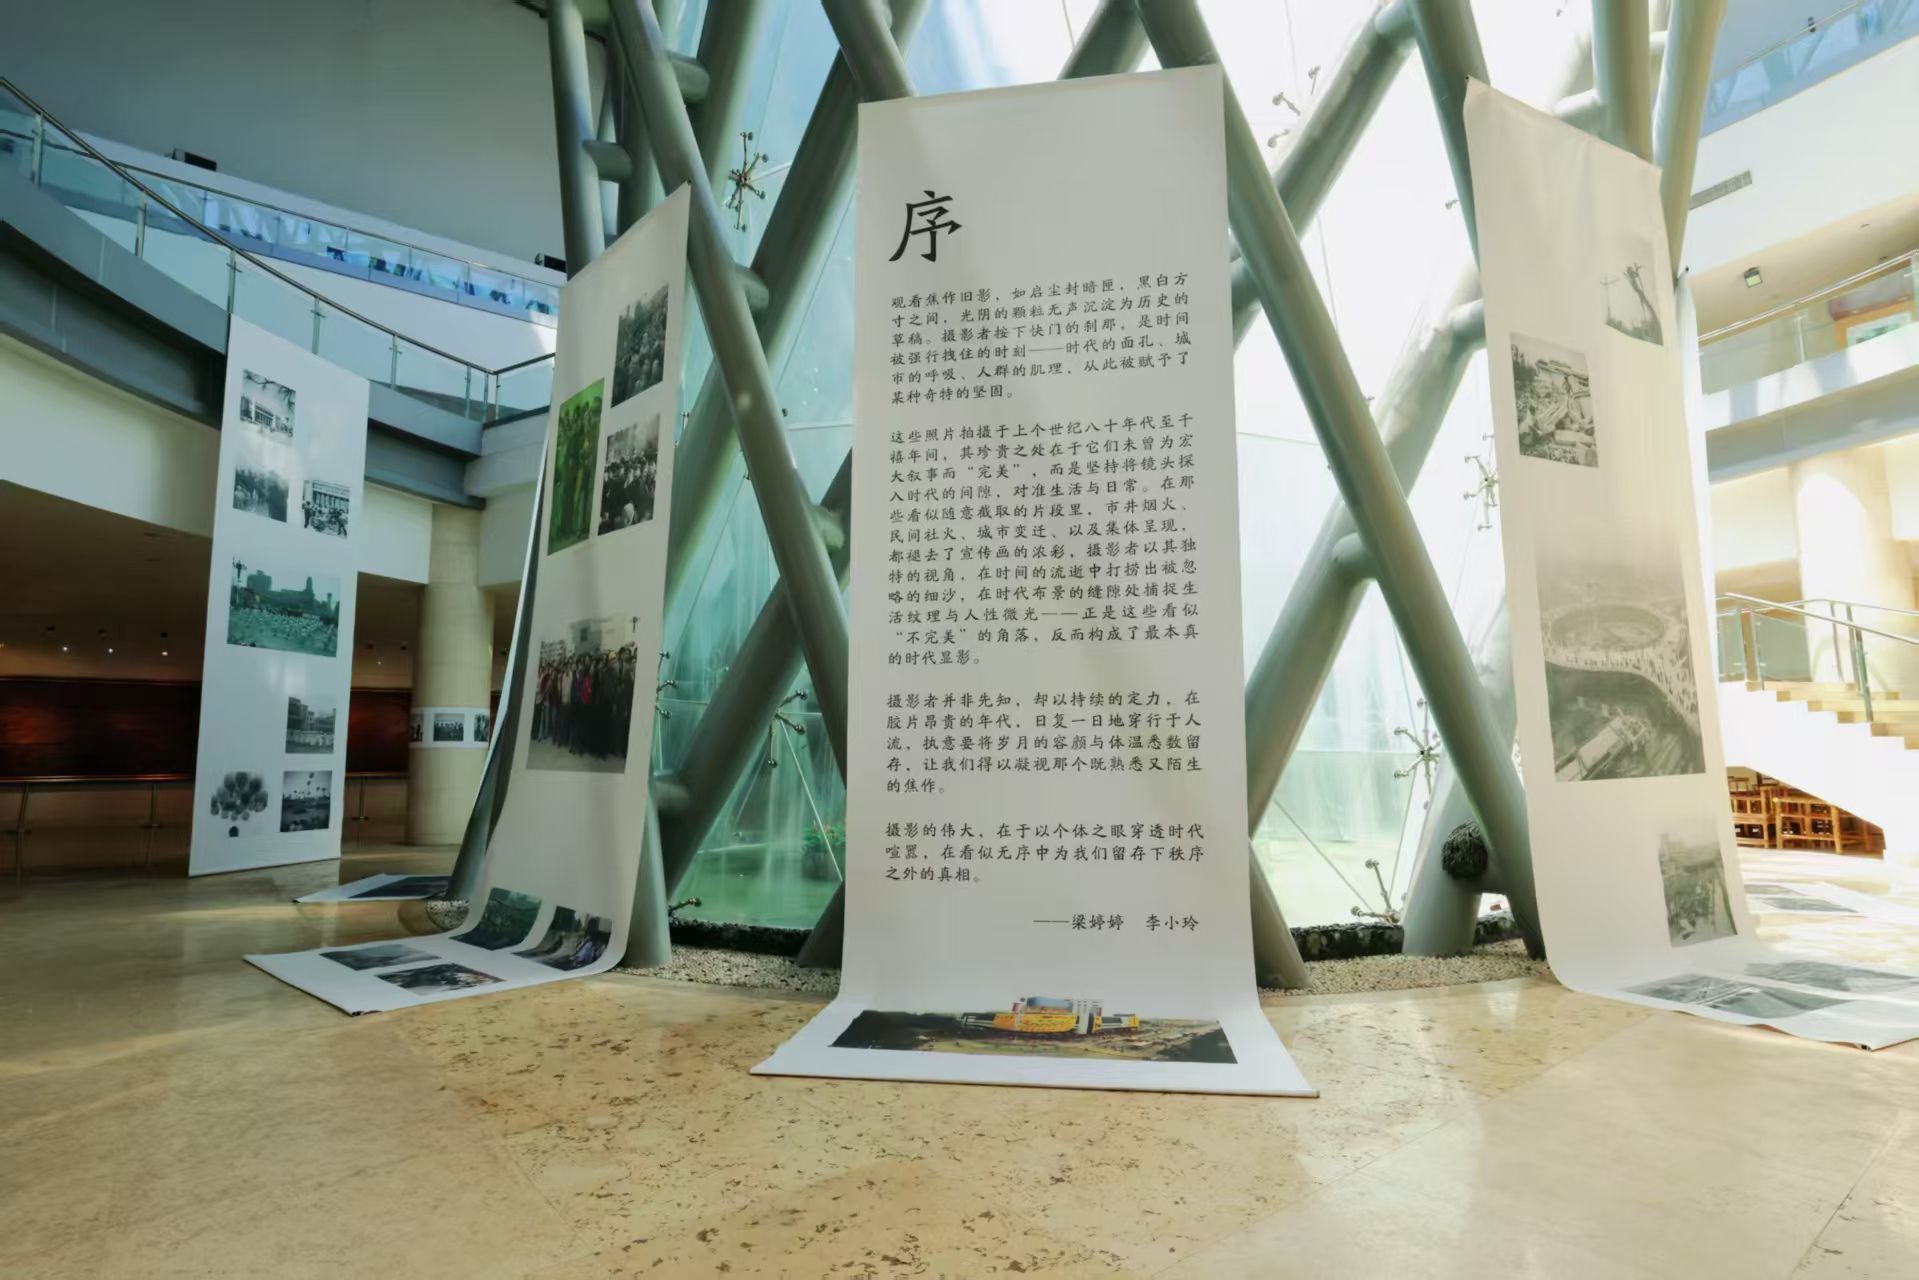 序
观看焦作旧影，如启尘封暗匣，黑白方
寸之间，光阴的颗粒无声沉淀为历史的
草稿。摄影者按下快门的刹那，是时间
被强行拽住的时刻——时代的面孔、城
市的呼吸、人群的肌理，从此被赋予了
某种奇特的坚固。
这些照片拍摄于上个世纪八十年代至千
禧年间，其珍贵之处在于它们未曾为宏
大叙事而“完美”，而是坚持将镜头探
入时代的间隙，对准生活与日常。在那
些看似随意截取的片段里，市井烟火、
民间社火、城市变迁、以及集体呈现，
都褪去了宣传画的浓彩，摄影者以其独
特的视角，在时间的流逝中打捞出被忽
略的细沙，在时代布景的缝隙处捕捉生
活纹理与人性微光——正是这些看似
“不完美”的角落，反而构成了最本真
的时代显影。
摄影者并非先知，却以持续的定力，在
胶片昂贵的年代，日复一日地穿行于人
流，执意要将岁月的容颜与体温悉数留
存，让我们得以凝视那个既熟悉又陌生
的焦作。
摄影的伟大，在于以个体之眼穿透时代
喧嚣，在看似无序中为我们留存下秩序
之外的真相。
——梁婷婷　李小玲